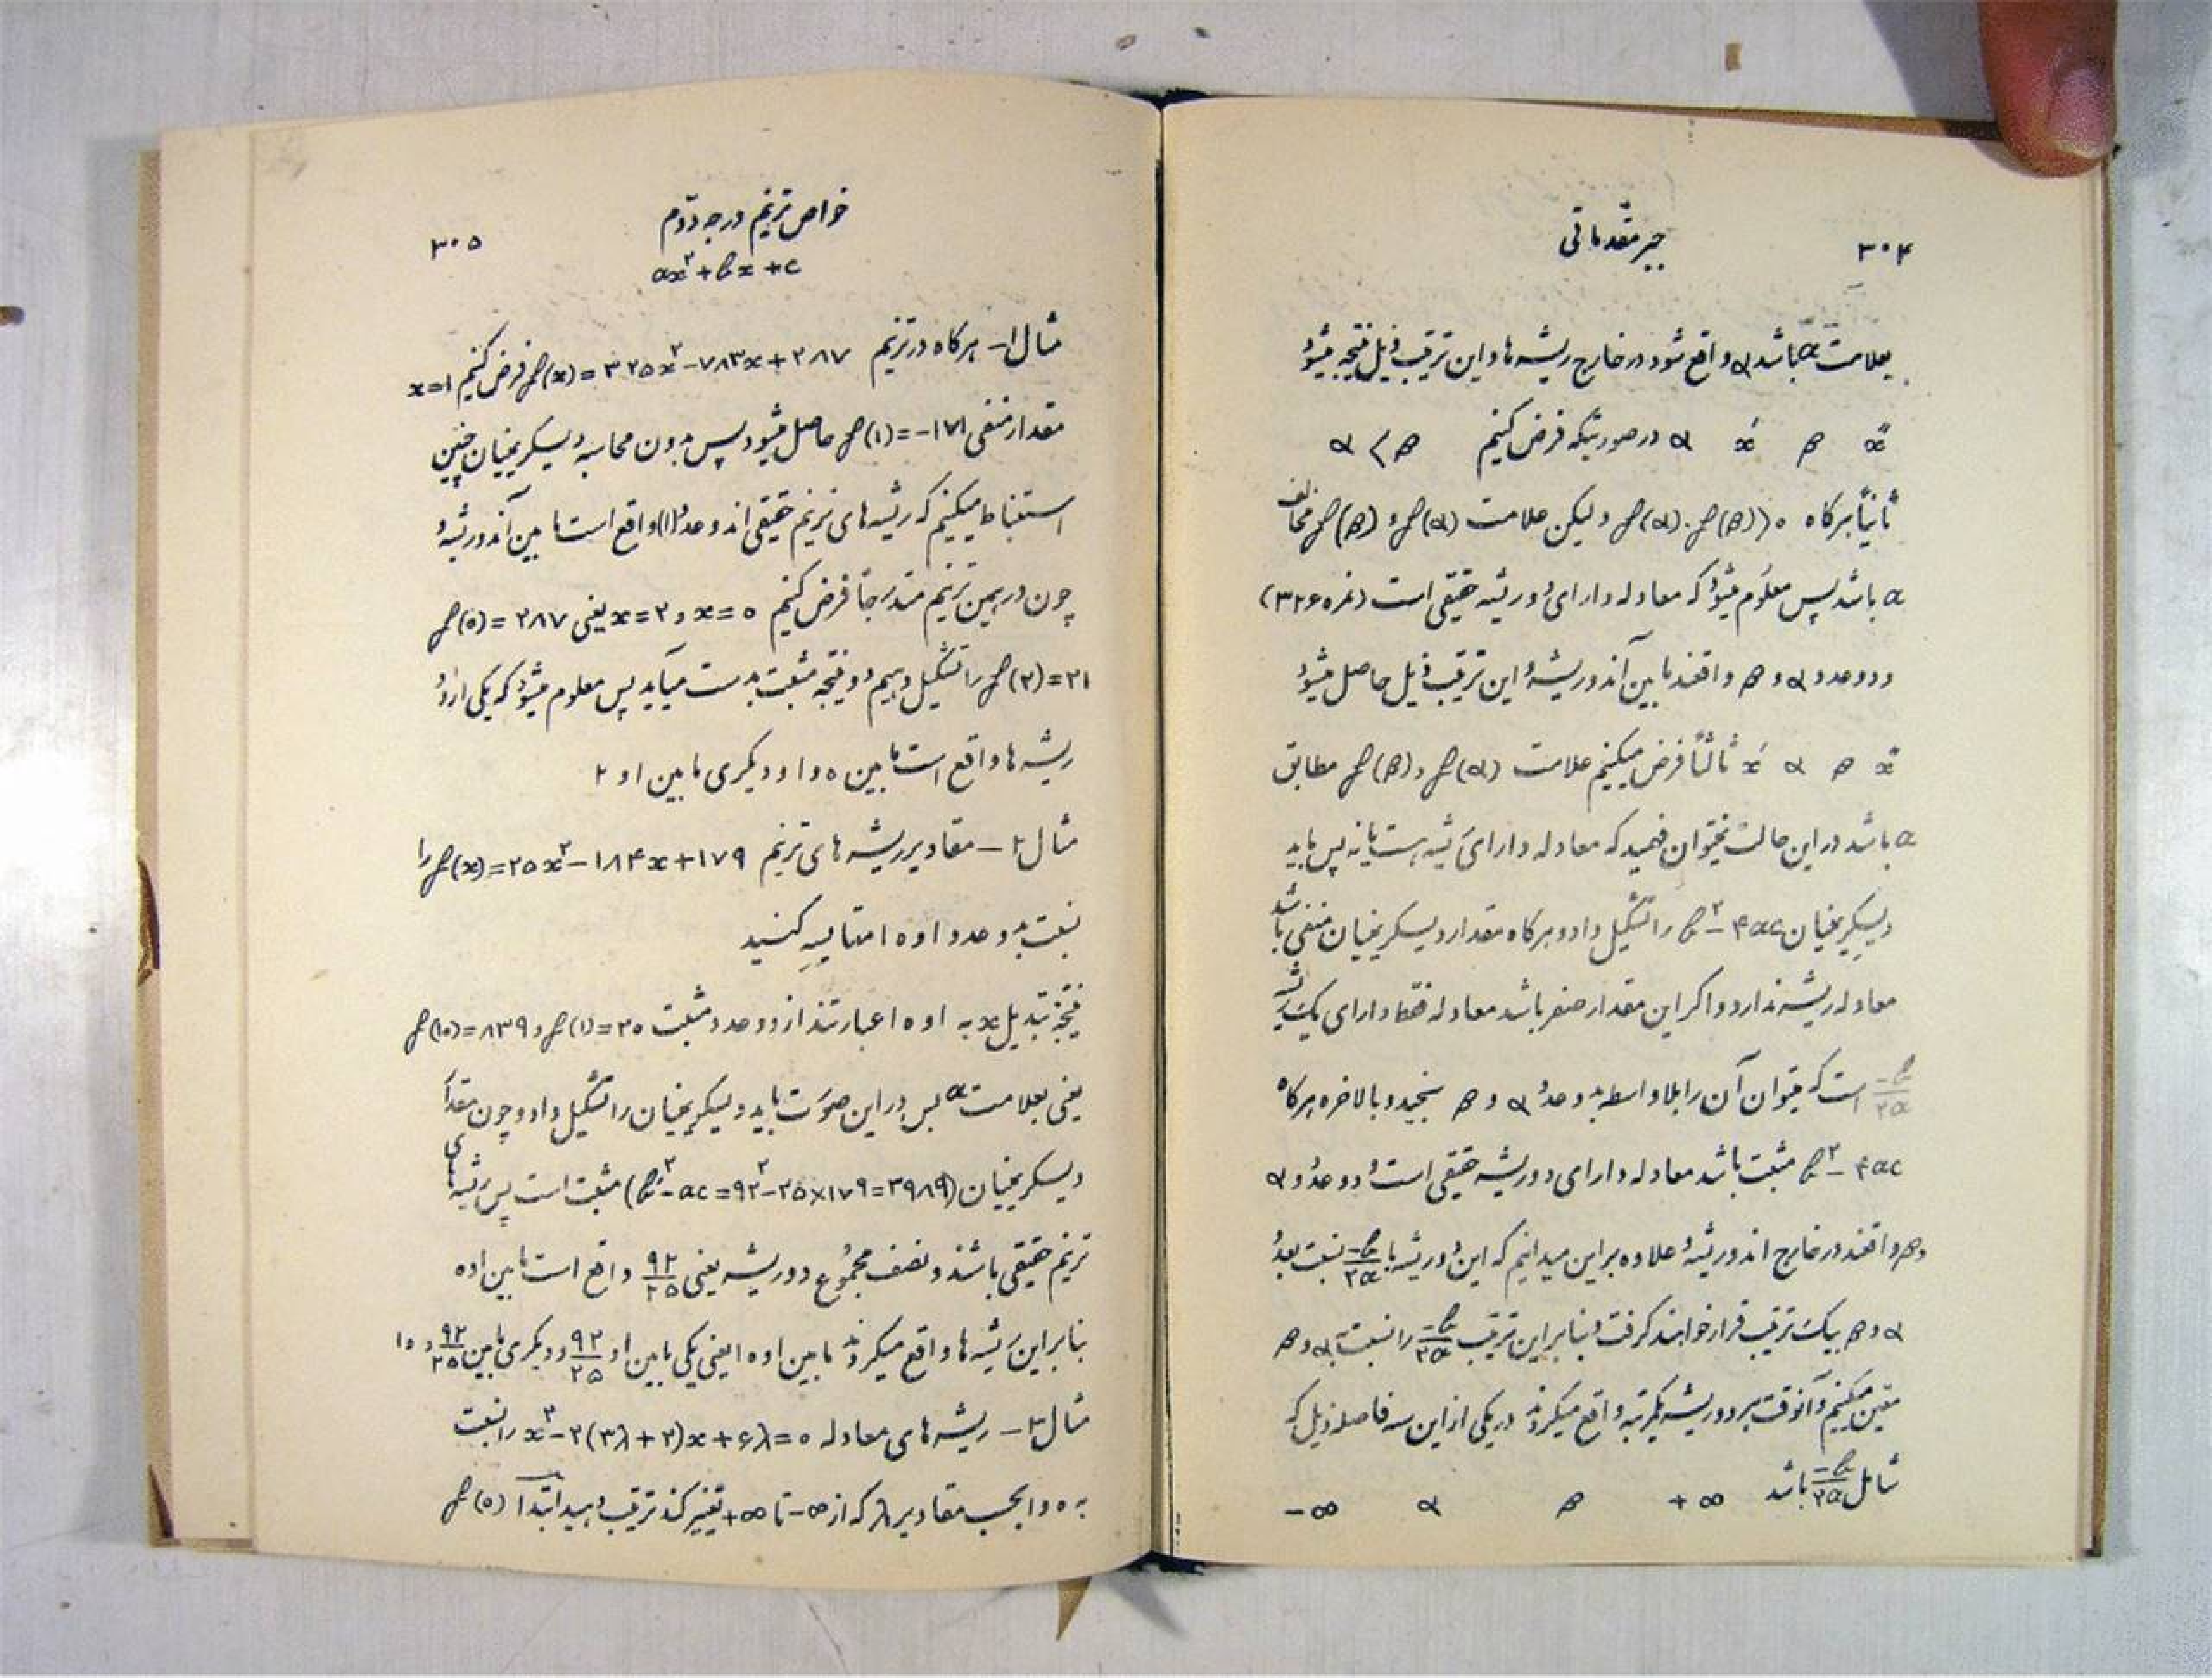 ۳۰۴
جبر مقدماتی
بعلامت a باشد α واقع شود در خارج ریشه ها و این ترتیب ذیل نتیجه میشود
x″ β x′ α در صورتیکه فرض کنیم α < β
ثانیاً هرگاه f(α).f(β)>0 ولیکن علامت f(α) و f(β) مخالف
a باشد پس معلوم میشود که معادله دارای دو ریشه حقیقی است (نمره ۳۲۶)
و دو عدد α و β واقعند مابین آندو ریشه و این ترتیب ذیل حاصل میشود
x″ β α x′ ثالثاً فرض میکنیم علامت f(α) و f(β) مطابق
a باشد در این حالت نمیتوان فهمید که معادله دارای ریشه هست یا نه پس باید
دیسکریمینان b²-۴ac را تشکیل داد و هرگاه مقدار دیسکریمینان منفی باشد
معادله ریشه ندارد و اگر این مقدار صفر باشد معادله فقط دارای یک ریشه
-b/۲a است که میتوان آن را بلاواسطه بدو عدد α و β سنجید و بالاخره هرگاه
b²-۴ac مثبت باشد معادله دارای دو ریشه حقیقی است و دو عدد α
و β واقعند در خارج اندو ریشه و علاوه بر این میدانیم که این دو ریشه با -b/۲a نسبت بعدد
α و β بیک ترتیب قرار خواهند گرفت و بنابراین ترتیب -b/۲a را نسبت به α و β
معین میکنیم و آنوقت هر دو ریشه یکمرتبه واقع میگردند در یکی از این سه فاصله ذیل که
شامل -b/۲a باشد +∞ β α -∞
خواص ترینم درجه دوّم
۳۰۵
ax²+bx+c
مثال ۱- هرگاه در ترینم f(x)=۳۲۵x²-۷۸۳x+۲۸۷ فرض کنیم x=۱
مقدار منفی f(۱)=-۱۷۱ حاصل میشود پس بدون محاسبه دیسکریمینان چنین
استنباط میکنیم که ریشه های ترینم حقیقی اند و عدد (۱) واقع است ما بین آندو ریشه و
چون در همین ترینم متدرجاً فرض کنیم x=۰ و x=۲ یعنی f(۰)=۲۸۷
f(۲)=۲۱ را تشکیل دهیم دو نتیجه مثبت بدست میآید پس معلوم میشود که یکی از دو
ریشه ها واقع است مابین ۰ و ۱ و دیگری ما بین ۱ و ۲
مثال ۲- مقادیر ریشه های ترینم f(x)=۲۵x²-۱۸۴x+۱۷۹ را
نسبت بدو عدد ۱ و ۱۰ مقایسه کنید
نتیجه تبدیل x به ۱ و ۱۰ عبارتند از دو عدد مثبت f(۱)=۲۰ و f(۱۰)=۸۳۹
یعنی بعلامت a پس در این صورت باید دیسکریمینان را تشکیل داد و چون مقدار
دیسکریمینان (b′²-ac=۹۲²-۲۵×۱۷۹=۳۹۸۹) مثبت است پس ریشه های
ترینم حقیقی باشند و نصف مجموع دو ریشه یعنی ۹۲/۲۵ واقع است مابین ۱ و ۱۰
بنابراین ریشه ها واقع میگردند مابین ۱ و ۱۰ یعنی یکی مابین ۱ و ۹۲/۲۵ و دیگری مابین ۹۲/۲۵ و ۱۰
مثال ۳- ریشه های معادله x²-۲(۳λ+۲)x+۶λ=۰ را نسبت
به ۰ و ۱ بحسب مقادیر λ که از -∞ تا +∞ تغییر کند ترتیب دهید ابتدا f(۰)